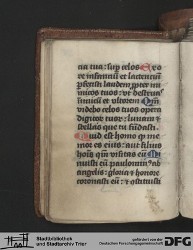 na tua: sup celos Ex o
re infantiū et lactentiū
pfecisti laudem ppter ini
micos tuos: vt destruas
inimicū et vltorem Qm̄
videbo celos tuos opera
digitor tuor: lunam et
stellas que tu fūdasti.
Quid est homo q me
mor es eius: aut filius
hoīs qm̄ visitas eū Mi
nuisti eū paulominꝰ ab
angelis: gloria et honore
coronasti eū: et ostituisti
Stadtbibliothek
und Stadtarchiv Trier
gefördert von der
Deutschen Forschungsgemeinschaft
DFG